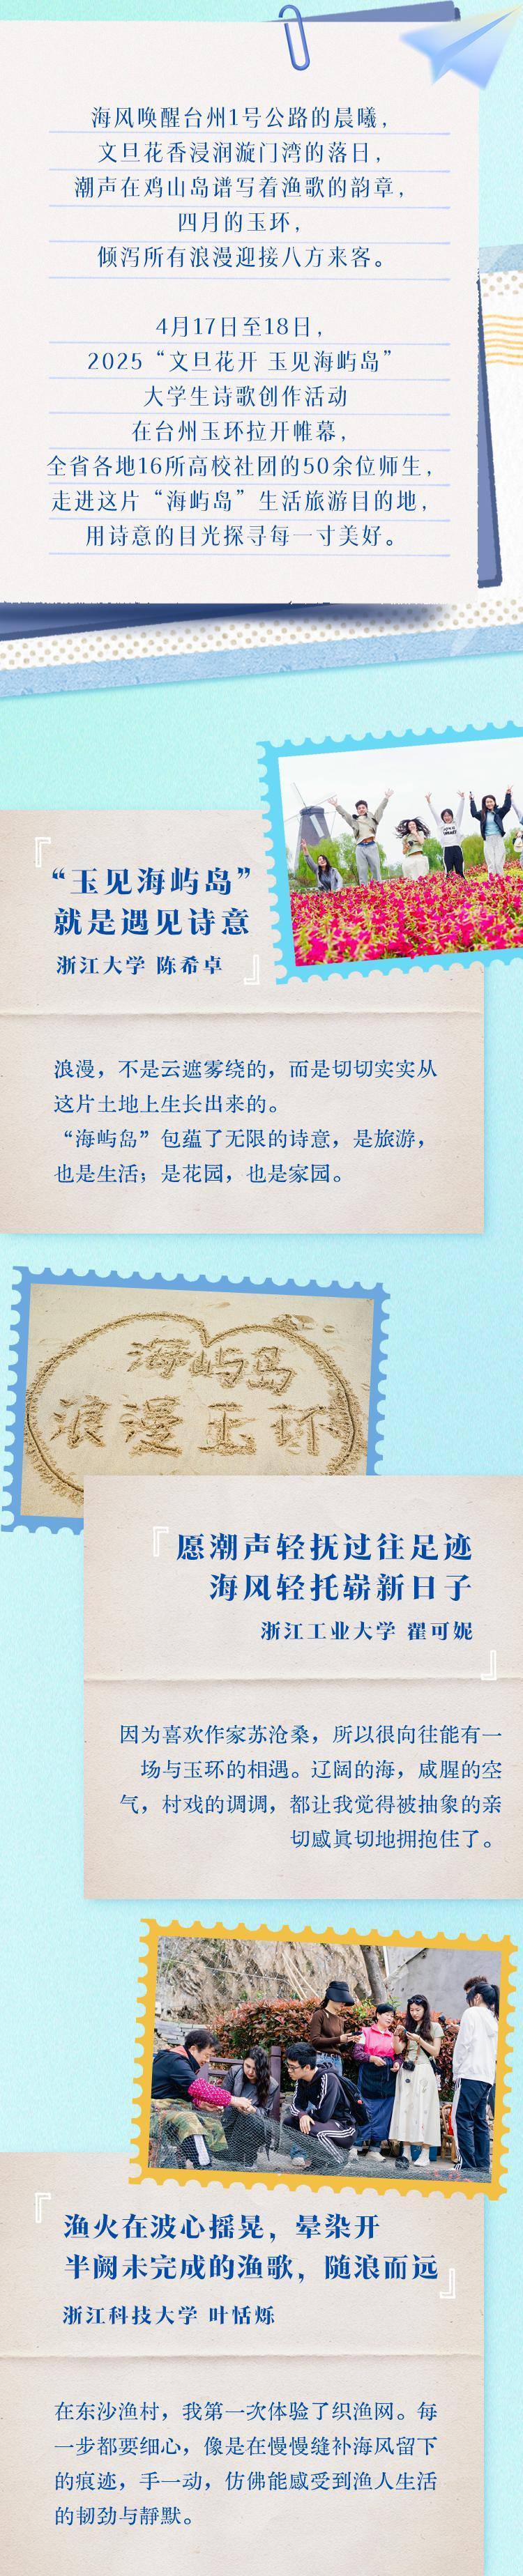 海风唤醒台州1号公路的晨曦，
文旦花香浸润漩门湾的落日，
潮声在鸡山岛谱写着渔歌的韵章，
四月的玉环，
倾泻所有浪漫迎接八方来客。
4月17日至18日，
2025“文旦花开 玉见海屿岛”
大学生诗歌创作活动
在台州玉环拉开帷幕，
全省各地16所高校社团的50余位师生，
走进这片“海屿岛”生活旅游目的地，
用诗意的目光探寻每一寸美好。
『“玉见海屿岛”
就是遇见诗意
浙江大学 陈希卓』
浪漫，不是云遮雾绕的，而是切切实实从
这片土地上生长出来的。
“海屿岛”包蕴了无限的诗意，是旅游，
也是生活；是花园，也是家园。
海屿岛
浪漫玉环
『愿潮声轻抚过往足迹
海风轻托崭新日子
浙江工业大学 翟可妮』
因为喜欢作家苏沧桑，所以很向往能有一
场与玉环的相遇。辽阔的海，咸腥的空
气，村戏的调调，都让我觉得被抽象的亲
切感真切地拥抱住了。
『渔火在波心摇晃，晕染开
半阙未完成的渔歌，随浪而远』
浙江科技大学 叶恬烁
在东沙渔村，我第一次体验了织渔网。每
一步都要细心，像是在慢慢缝补海风留下
的痕迹，手一动，仿佛能感受到渔人生活
的韧劲与静默。